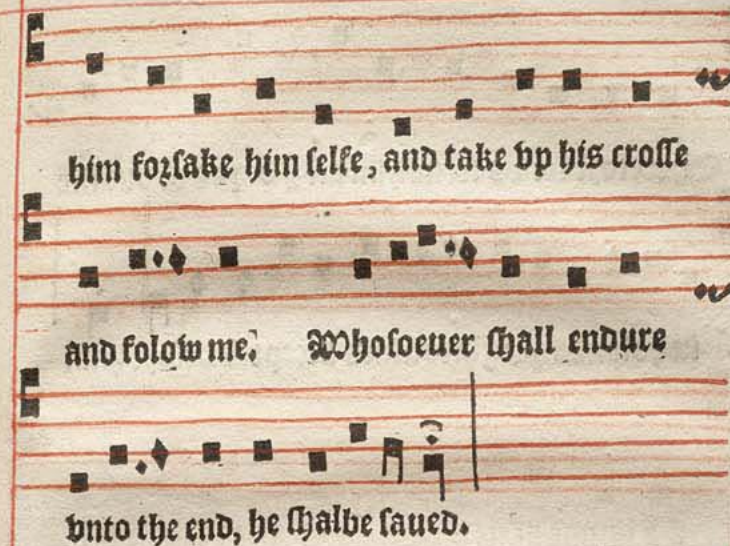 him forsake him selfe, and take vp his crosse
and folow me. Whosoeuer shall endure
vnto the end, he shalbe saued.